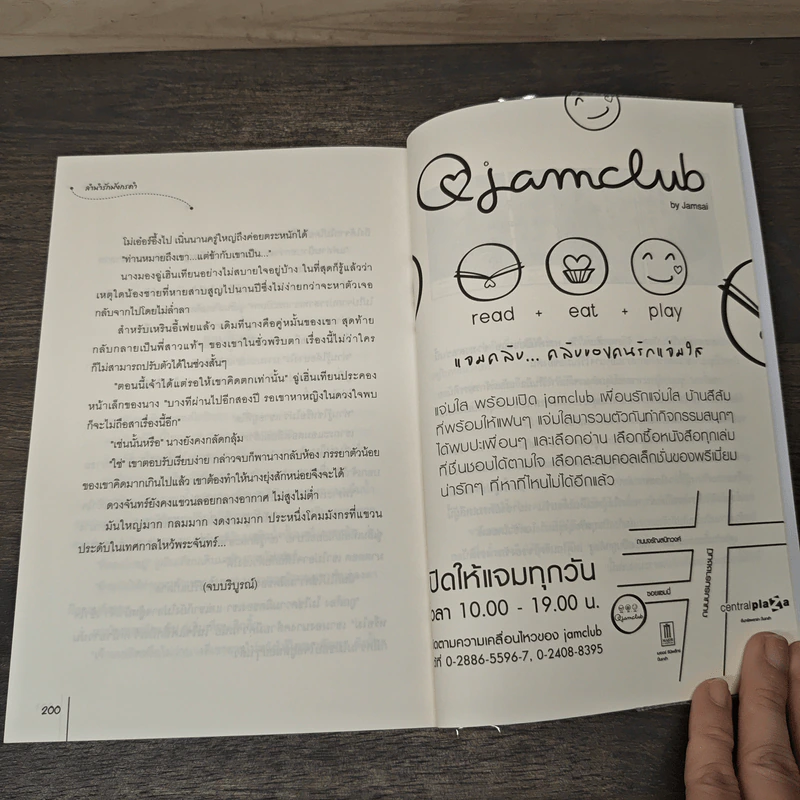 ลำนำรักมังกรดำ
โม่เอ๋อร์อึ้งไป เนิ่นนานครู่ใหญ่ถึงค่อยตระหนักได้
"ท่านหมายถึงเขา...แต่ข้ากับเขาเป็น..."
นางมองอู่เฮิ่นเทียนอย่างไม่สบายใจอยู่บ้าง ในที่สุดก็รู้แล้วว่า
เหตุใดน้องชายที่หายสาบสูญไปนานปีซึ่งไม่ง่ายกว่าจะหาตัวเจอ
กลับจากไปโดยไม่ล่ำลา
สำหรับเหรินอี้เฟยแล้ว เดิมทีนางคือคู่หมั้นของเขา สุดท้าย
กลับกลายเป็นพี่สาวแท้ๆ ของเขาในชั่วพริบตา เรื่องนี้ไม่ว่าใคร
ก็ไม่สามารถปรับตัวได้ในช่วงสั้นๆ
"ตอนนี้เจ้าได้แต่รอให้เขาคิดตกเท่านั้น" อู่เฮิ่นเทียนประคอง
หน้าเล็กของนาง "บางทีผ่านไปอีกสองปี รอเขาหาหญิงในดวงใจพบ
ก็จะไม่ถือสาเรื่องนี้อีก"
"เช่นนั้นหรือ" นางยังคงกลัดกลุ้ม
"ใช่" เขาตอบรับเรียบง่าย กล่าวจบก็พานางกลับห้อง ภรรยาตัวน้อย
ของเขาคิดมากเกินไปแล้ว เขาต้องทำให้นางยุ่งสักหน่อยจึงจะได้
ดวงจันทร์ยังคงแขวนลอยกลางอากาศ ไม่สูงไม่ต่ำ
มันใหญ่มาก กลมมาก งดงามมาก ประหนึ่งโคมมังกรที่แขวน
ประดับในเทศกาลไหว้พระจันทร์...
(จบบริบูรณ์)
200
@jamclub
by Jamsai
read + eat + play
แจมคลับ... คลับของคนรักแจ่มใส
แจ่มใส พร้อมเปิด jamclub เพื่อนรักแจ่มใส บ้านสีส้ม
ที่พร้อมให้แฟนๆ แจ่มใสมารวมตัวกันทำกิจกรรมสนุกๆ
ได้พบปะเพื่อนๆ และเลือกอ่าน เลือกซื้อหนังสือทุกเล่ม
ที่ชื่นชอบได้ตามใจ เลือกสะสมคอลเล็กชั่นของพรีเมี่ยม
น่ารักๆ ที่หาที่ไหนไม่ได้อีกแล้ว
ถนนจรัญสนิทวงศ์
ถนนบรมราชชนนี
ปิดให้แจมทุกวัน
วลา 10.00 - 19.00 น.
ซอยแฮปปี้
@jamclub
centralplaza
ดตามความเคลื่อนไหวของ jamclub
ที่ 0-2886-5596-7, 0-2408-8395